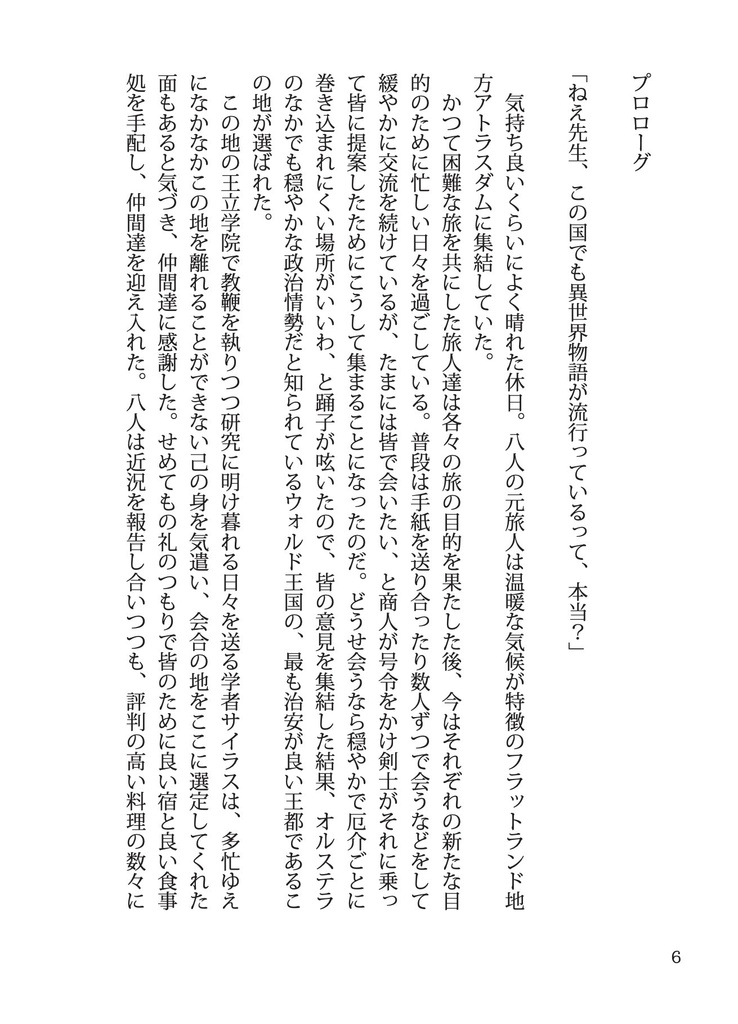 プロローグ
「ねえ先生、この国でも異世界物語が流行っているって、本当？」
気持ち良いくらいによく晴れた休日。八人の元旅人は温暖な気候が特徴のフラットランド地
方アトラスダムに集結していた。
かつて困難な旅を共にした旅人達は各々の旅の目的を果たした後、今はそれぞれの新たな目
的のために忙しい日々を過ごしている。普段は手紙を送り合ったり数人ずつで会うなどをして
緩やかに交流を続けているが、たまには皆で会いたい、と商人が号令をかけ剣士がそれに乗っ
て皆に提案したためにこうして集まることになったのだ。どうせ会うなら穏やかで厄介ごとに
巻き込まれにくい場所がいいわ、と踊子が呟いたので、皆の意見を集結した結果、オルステラ
のなかでも穏やかな政治情勢だと知られているウォルド王国の、最も治安が良い王都であるこ
の地が選ばれた。
この地の王立学院で教鞭を執りつつ研究に明け暮れる日々を送る学者サイラスは、多忙ゆえ
になかなかこの地を離れることができない己の身を気遣い、会合の地をここに選定してくれた
面もあると気づき、仲間達に感謝した。せめてもの礼のつもりで皆のために良い宿と良い食事
処を手配し、仲間達を迎え入れた。八人は近況を報告し合いつつも、評判の高い料理の数々に
6